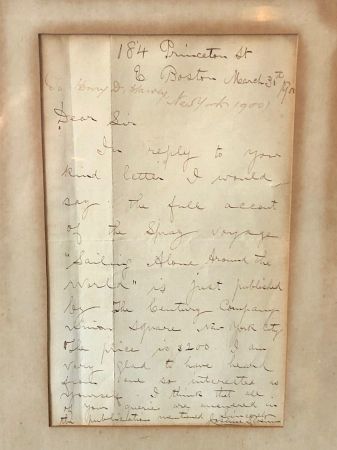 184 Princeton St
E Boston March 31st 1900
New York 1900
Dear Sir
In reply to your
kind letter I would
say: the full account
of the Spray voyage
"Sailing Alone Around the
World" is just published
by The Century Company
Union Square New York City
The price is $200 I am
very glad to have heard
from one so interested as
yourself. I think that all
of your queries are answered in
the publication mentioned Sincerely
Joshua Slocum